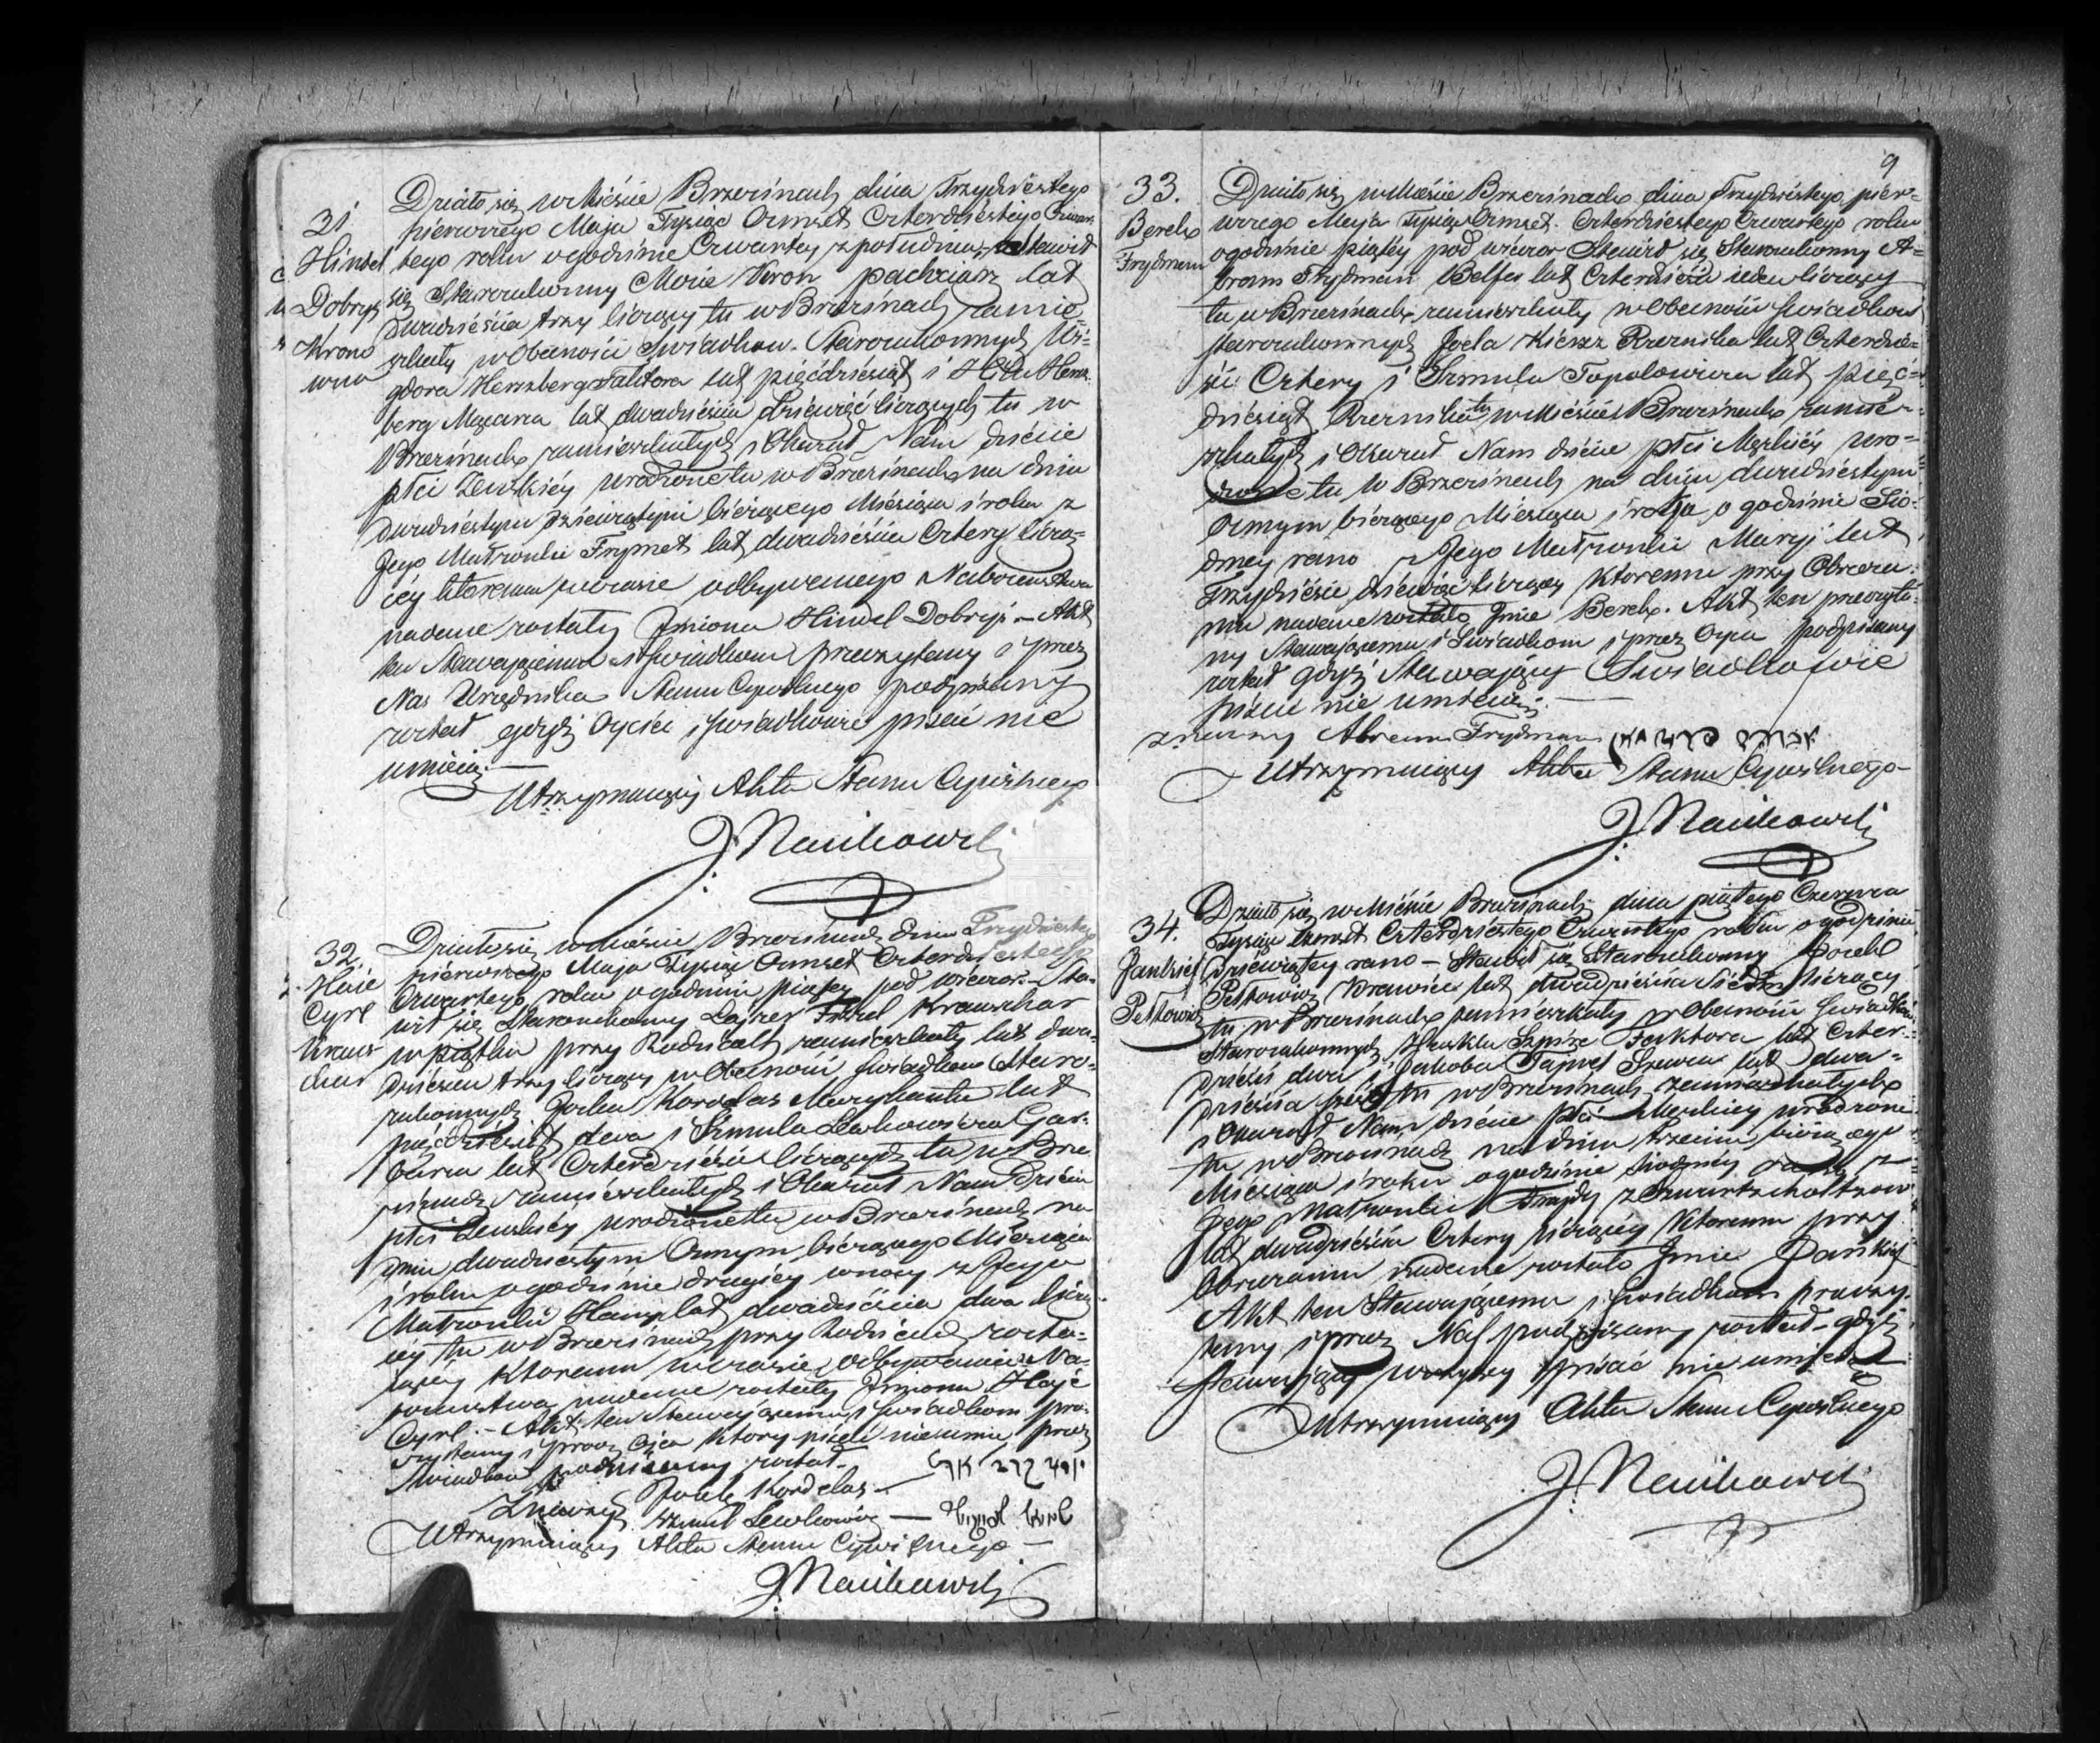 31.
Hindel
Dobrys
Krono
wna
Działo się w Mieście Brzezinach dnia Trzydziestego
pierwszego Maja Tysiąc Ośmset Czterdziestego Czwar
tego roku o godzinie Czwartey z południa, Stawił
się Starozakonny Moric Kron pachciarz lat
dwadzieścia trzy liczący tu w Brzezinach zamie
szkały w Obecności Swiadków Starozakonnych Wi=
gdora Herszberg Faktora lat pięćdziesiąt i Herszberg
berg Mączarza lat dwadzieścia dziewięć liczących tu w
Brzezinach zamieszkałych i Okazał Nam dziecie
płci Żeńskiéy urodzone tu w Brzezinach na dniu
dwudziestym dziewiątym bieżącego Miesiąca i roku z
Jego Małżonki Frymet lat dwadzieścia Cztery liczą=
céy któremu w czasie odbywanego Nabożeństwa
nadane zostały Jmiona Hindel Dobrys. – Akt
ten Stawającemu i Swiadkom przeczytany i przez
Nas Urzędnika Stanu Cywilnego podpisany
został gdyż Oyciec i Swiadkowie pisać nie
umieią. —
Utrzymuiący Akta Stanu Cywilnego
J. Naukowski
32.
Haie
Cyrl
Kraus
char
Działo się w Mieście Brzezinach dnia Trzydziestego
pierwszego Maja Tysiąc Ośmset Czterdziestego
Czwartego roku o godzinie piątey pod wieczor. – Sta=
wił się Starozakonny Layzer Krauschar
w piątku przy Rodzicach zamieszkały lat dwa=
dzieścia trzy liczący w Obecności Swiadków Staro=
zakonnych Joska Kordelas Merykanta lat
pięćdziesiąt dwa i Szmula Lewkowicza Gar=
barza lat Czterdzieści liczących tu w Brze
zinach zamieszkałych i Okazał Nam Dziecie
płci Żeńskiéy urodzone tu w Brzezinach na
dniu dwudziestym Osmym bieżącego Miesiąca
i roku o godzinie drugiéy w nocy z Jego
Małżonki Hany lat dwadzieścia dwa liczą
céy tu w Brzezinach przy Rodzicach zosta=
jącéy któremu w czasie odbywania Na=
bożeństwa nadane zostały Jmiona Haje
Cyrl. – Akt ten Stawającemu i Swiadkom prze
czytany i prócz Ojca który pisać nieumie przez
Swiadków podpisany został.
Josek Kordelas —
Szmul Lewkowicz —
Utrzymuiący Akta Stanu Cywilnego —
J. Naukowski
9
33.
Berek
Frydman
Działo się w Mieście Brzezinach dnia Trzydziestego pier=
wszego Maja Tysiąc Ośmset Czterdziestego Czwartego roku
o godzinie piątéy pod wieczor Stawił się Starozakonny A=
bram Frydman Belfer lat Czterdzieści ieden liczący
tu w Brzezinach zamieszkały w Obecności Swiadków
Starozakonnych Joela Kiersz Rzeznika lat Czterdzie=
ści Cztery i Szmula Topolowicza lat pięć=
dziesiąt Rzeznika tu w Mieście Brzezinach zamie=
szkałych i Okazał Nam dziecie płci Męzkiéy uro=
dzone tu w Brzezinach na dniu dwudziestym
osmym bieżącego Miesiąca i roku o godzinie Sio=
dmey rano z Jego Małżonki Maryi lat
Trzydzieści dziewięć liczącey ktoremu przy Obrzeza=
niu nadane zostało Jmie Berek. Akt ten przeczyta=
ny Stawającemu i Swiadkom i przez Oyca podpisany
został gdyż Stawający Swiadkowie
pisać nie umieią. —
Abram Frydman
Utrzymuiący Akta Stanu Cywilnego
J. Naukowski
34.
Jankiel
Pełkowicz
Działo się w Mieście Brzezinach dnia piątego Czerwca
Tysiąc Ośmset Czterdziestego Czwartego roku o godzinie
dziewiątey rano – Stawił się Starozakonny
Pełkowicz Krawiec lat dwadzieścia Siedm liczący
tu w Brzezinach zamieszkały w Obecności Swiadków
Starozakonnych Szpiro Faktora lat Czter=
dzieści dwa i Jakoba Szewca lat dwa=
dzieścia sześć tu w Brzezinach zamieszkałych
i Okazał Nam dziecie płci Męzkiey urodzone
tu w Brzezinach na dniu trzecim bieżącego
Miesiąca i roku o godzinie siodmey rano z
Jego Małżonki Frajdy
lat dwadzieścia Cztery liczącéy Któremu przy
Obrzezaniu nadane zostało Jmie Jankiel
Akt ten Stawającemu i Swiadkom przeczy=
tany i przez Nas podpisany został – gdyż
Stawający wszyscy pisać nie umieją
Utrzymuiący Akta Stanu Cywilnego
J. Naukowski